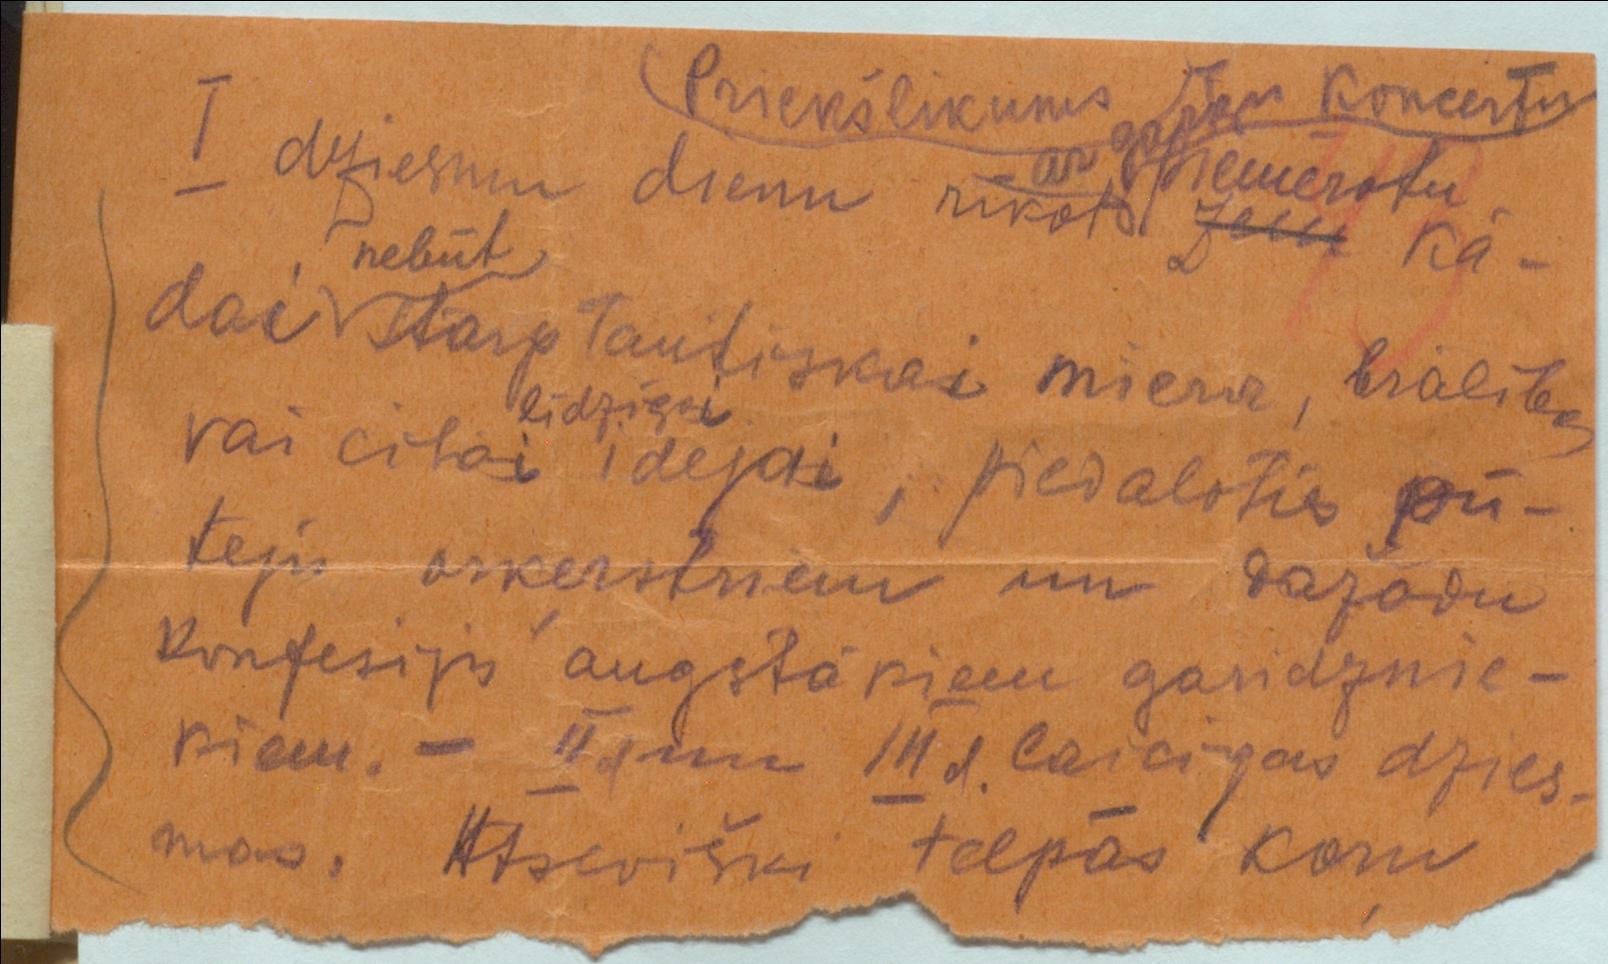 Priekšlikums koncertu
I dziesmu dienu rīkot ar garīgu piemērotu kā-
dai nebūt starptautiskai miera, brālības
vai citai līdzīgai idejai, piedaloties pū-
tēju orķerstriem un dažādu
konfesiju augstākiem garīdznie-
kiem. – II d un III d. laicīgas dzies-
mas. Atsevišķi telpās koŗu